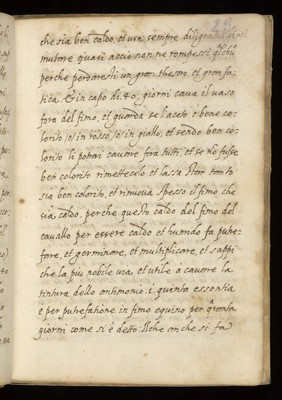 che sia ben caldo, et usa sempre diligentia
mutare quasi accio non ne rompessi
perche perderesti un gran thesoro, et gran fa-
tica. Et in capo di 40. giorni cava il vaso
fora del fimo, et guarda se l'aceto è bene co-
lorito /o/ in rosso /o/ in giallo, et sendo ben co-
lorito li potrai cavare fora tutti, et se nō fusse
ben colorito rimettecelo et lassa star tanto
sia ben colorito, et rinueva spesso il fimo che
sia caldo, perche questo caldo del fimo del
cavallo per essere caldo et humido fa putre-
fare, et germinare, et multiplicare, et sappi
che la piu nobile via, et utile a cavare la
tintura dello antimonio .i. quinta essentia
è per putrefatione in fimo equino per
giorni come si è detto. Il che anche si fa